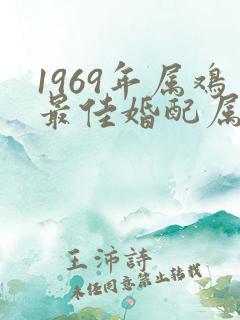 1969年属鸡
最佳婚配属
王沛詩
未经同意禁止转载